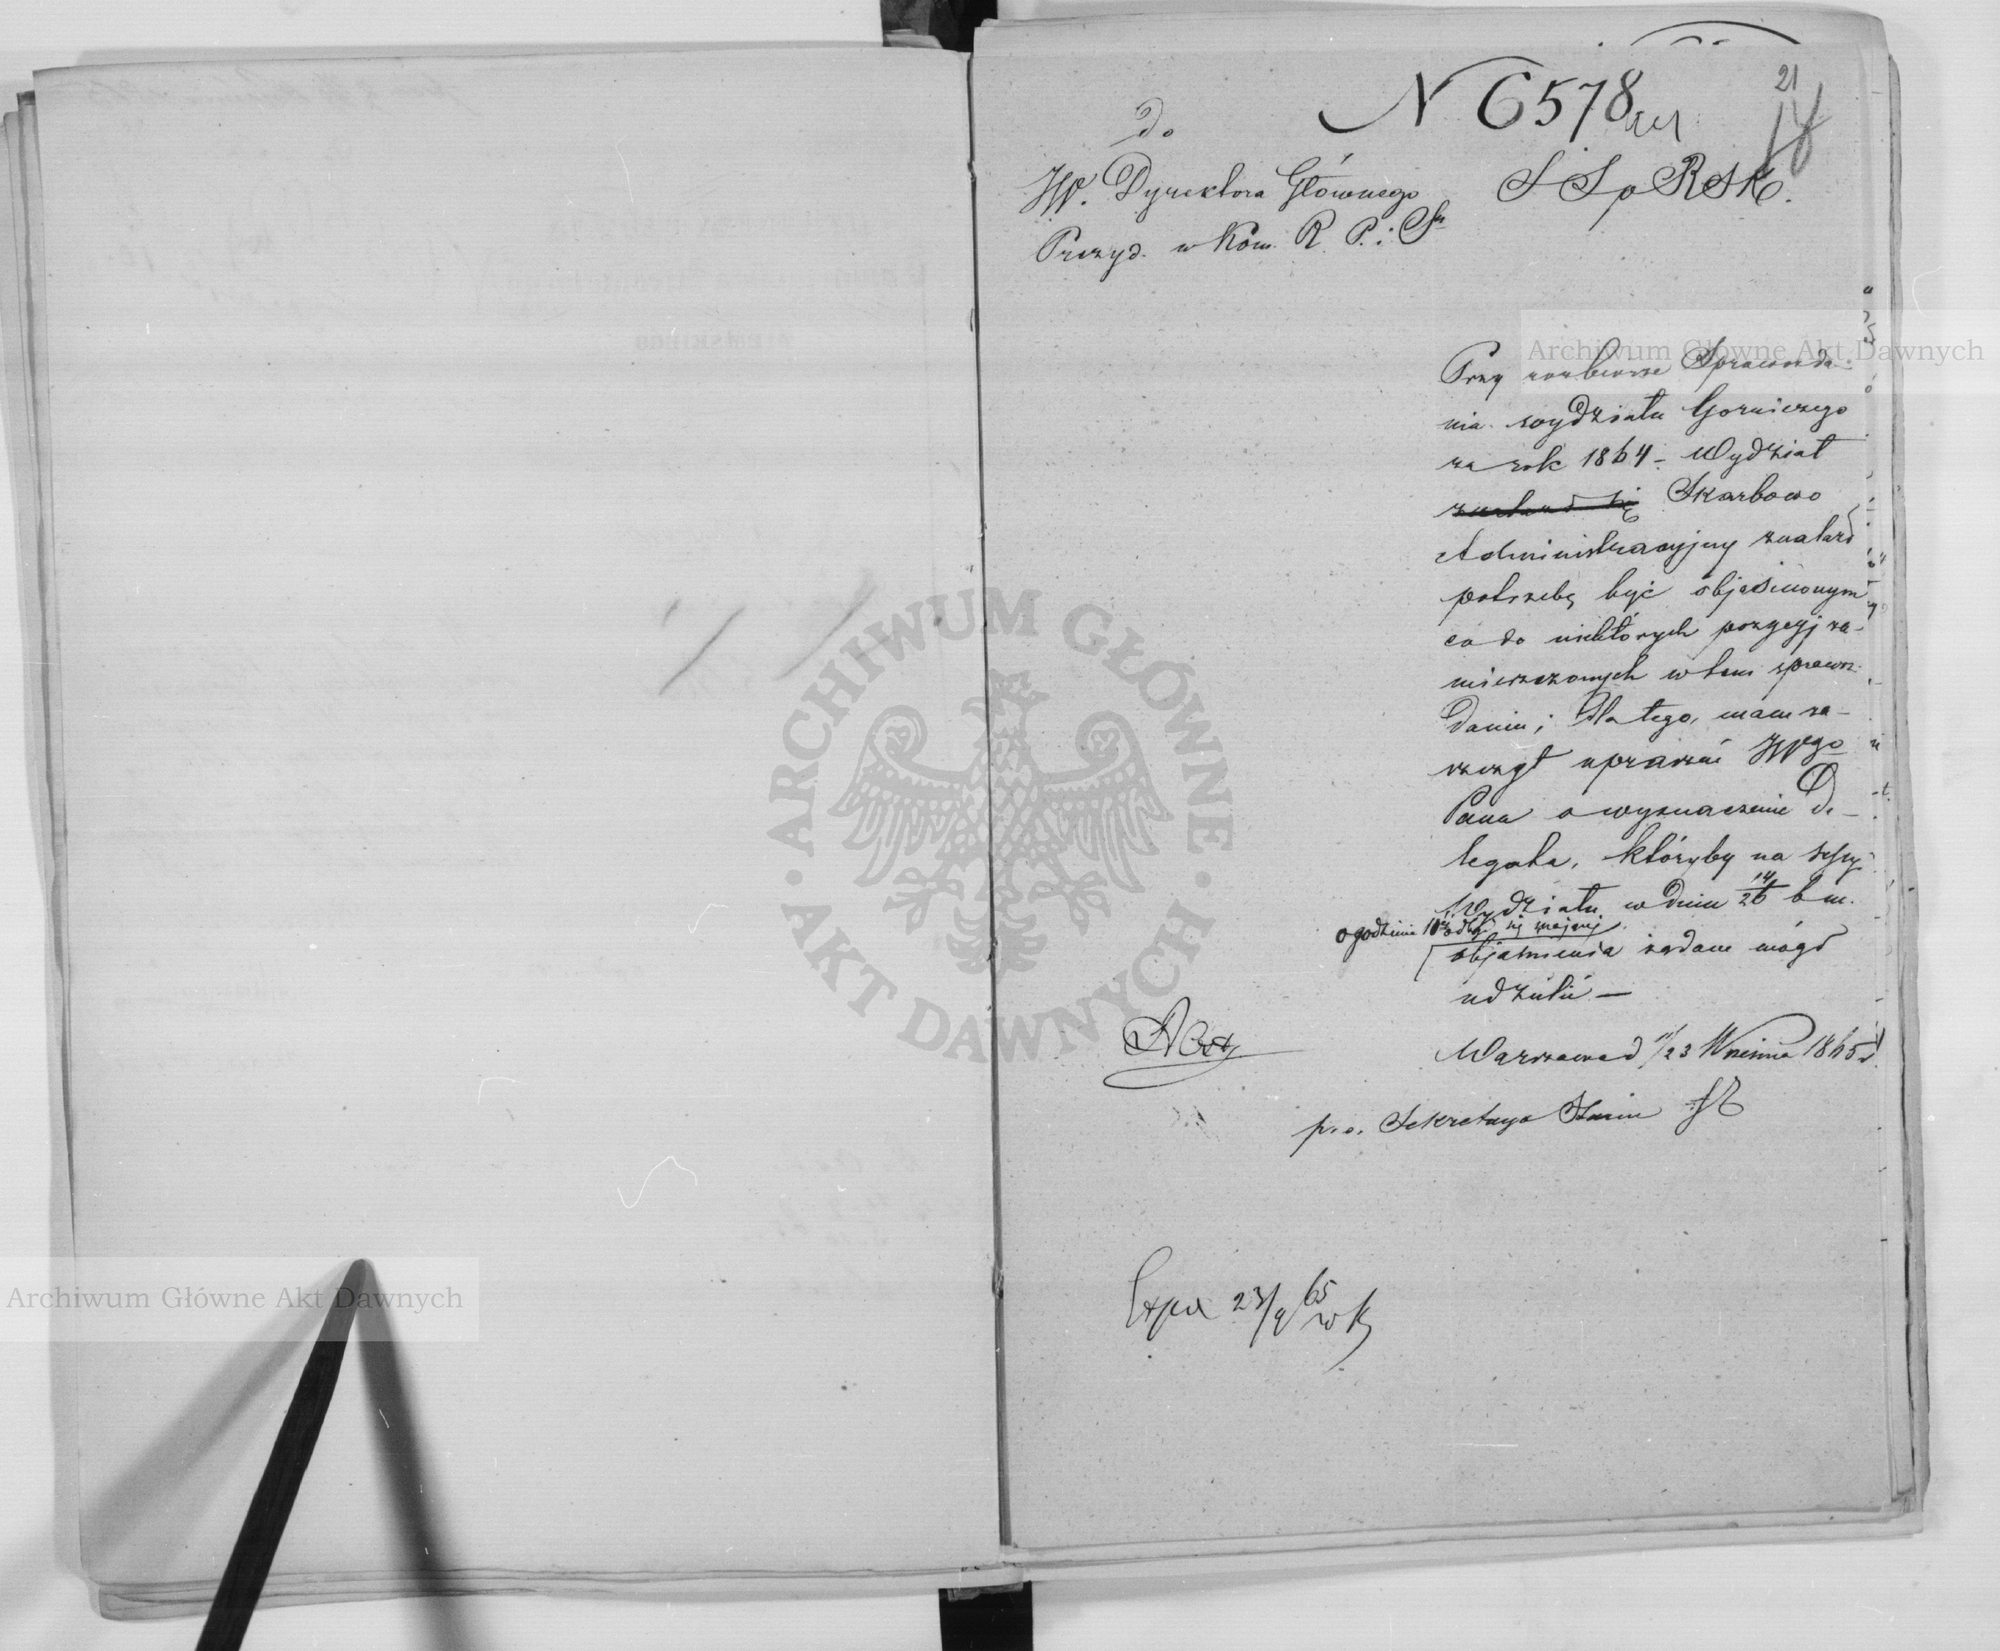 21
N 6578
18
Do
JW. Dyrektora Głównego
Prezyd. w Kom. R. P. i S
S S p R S K.
Przy rozbiorze Sprawozda-
nia wydziału Gorniczego
za rok 1864 – Wydział
znalazł się Skarbowo
Administracyjny znalazł
potrzebę być objaśnionym
co do niektórych pozycyj za-
mieszczonych w tem sprawoz-
daniu; dla tego, mam za-
szczyt upraszać JWgo
Pana o wyznaczenie De-
legata, któryby na sessyi
Wydziału w dniu 14/26 b m.
o godzinie 10 odbyć się mającej
objaśnienia żądane mógł
udzielić –
Warszawa d 11/23 Września 1865 r.
p. o. Sekretarza Stanu
Exped 23/9 65
Archiwum Główne Akt Dawnych
Archiwum Główne Akt Dawnych
· ARCHIWUM GŁÓWNE · AKT DAWNYCH